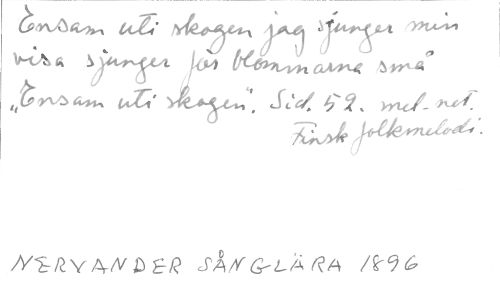 Ensam uti skogen jag sjunger min
visa sjunger för blommarna små
"Ensam uti skogen". Sid. 52. mel-not.
Finsk folkmelodi.
NERVANDER SÅNGLÄRA 1896